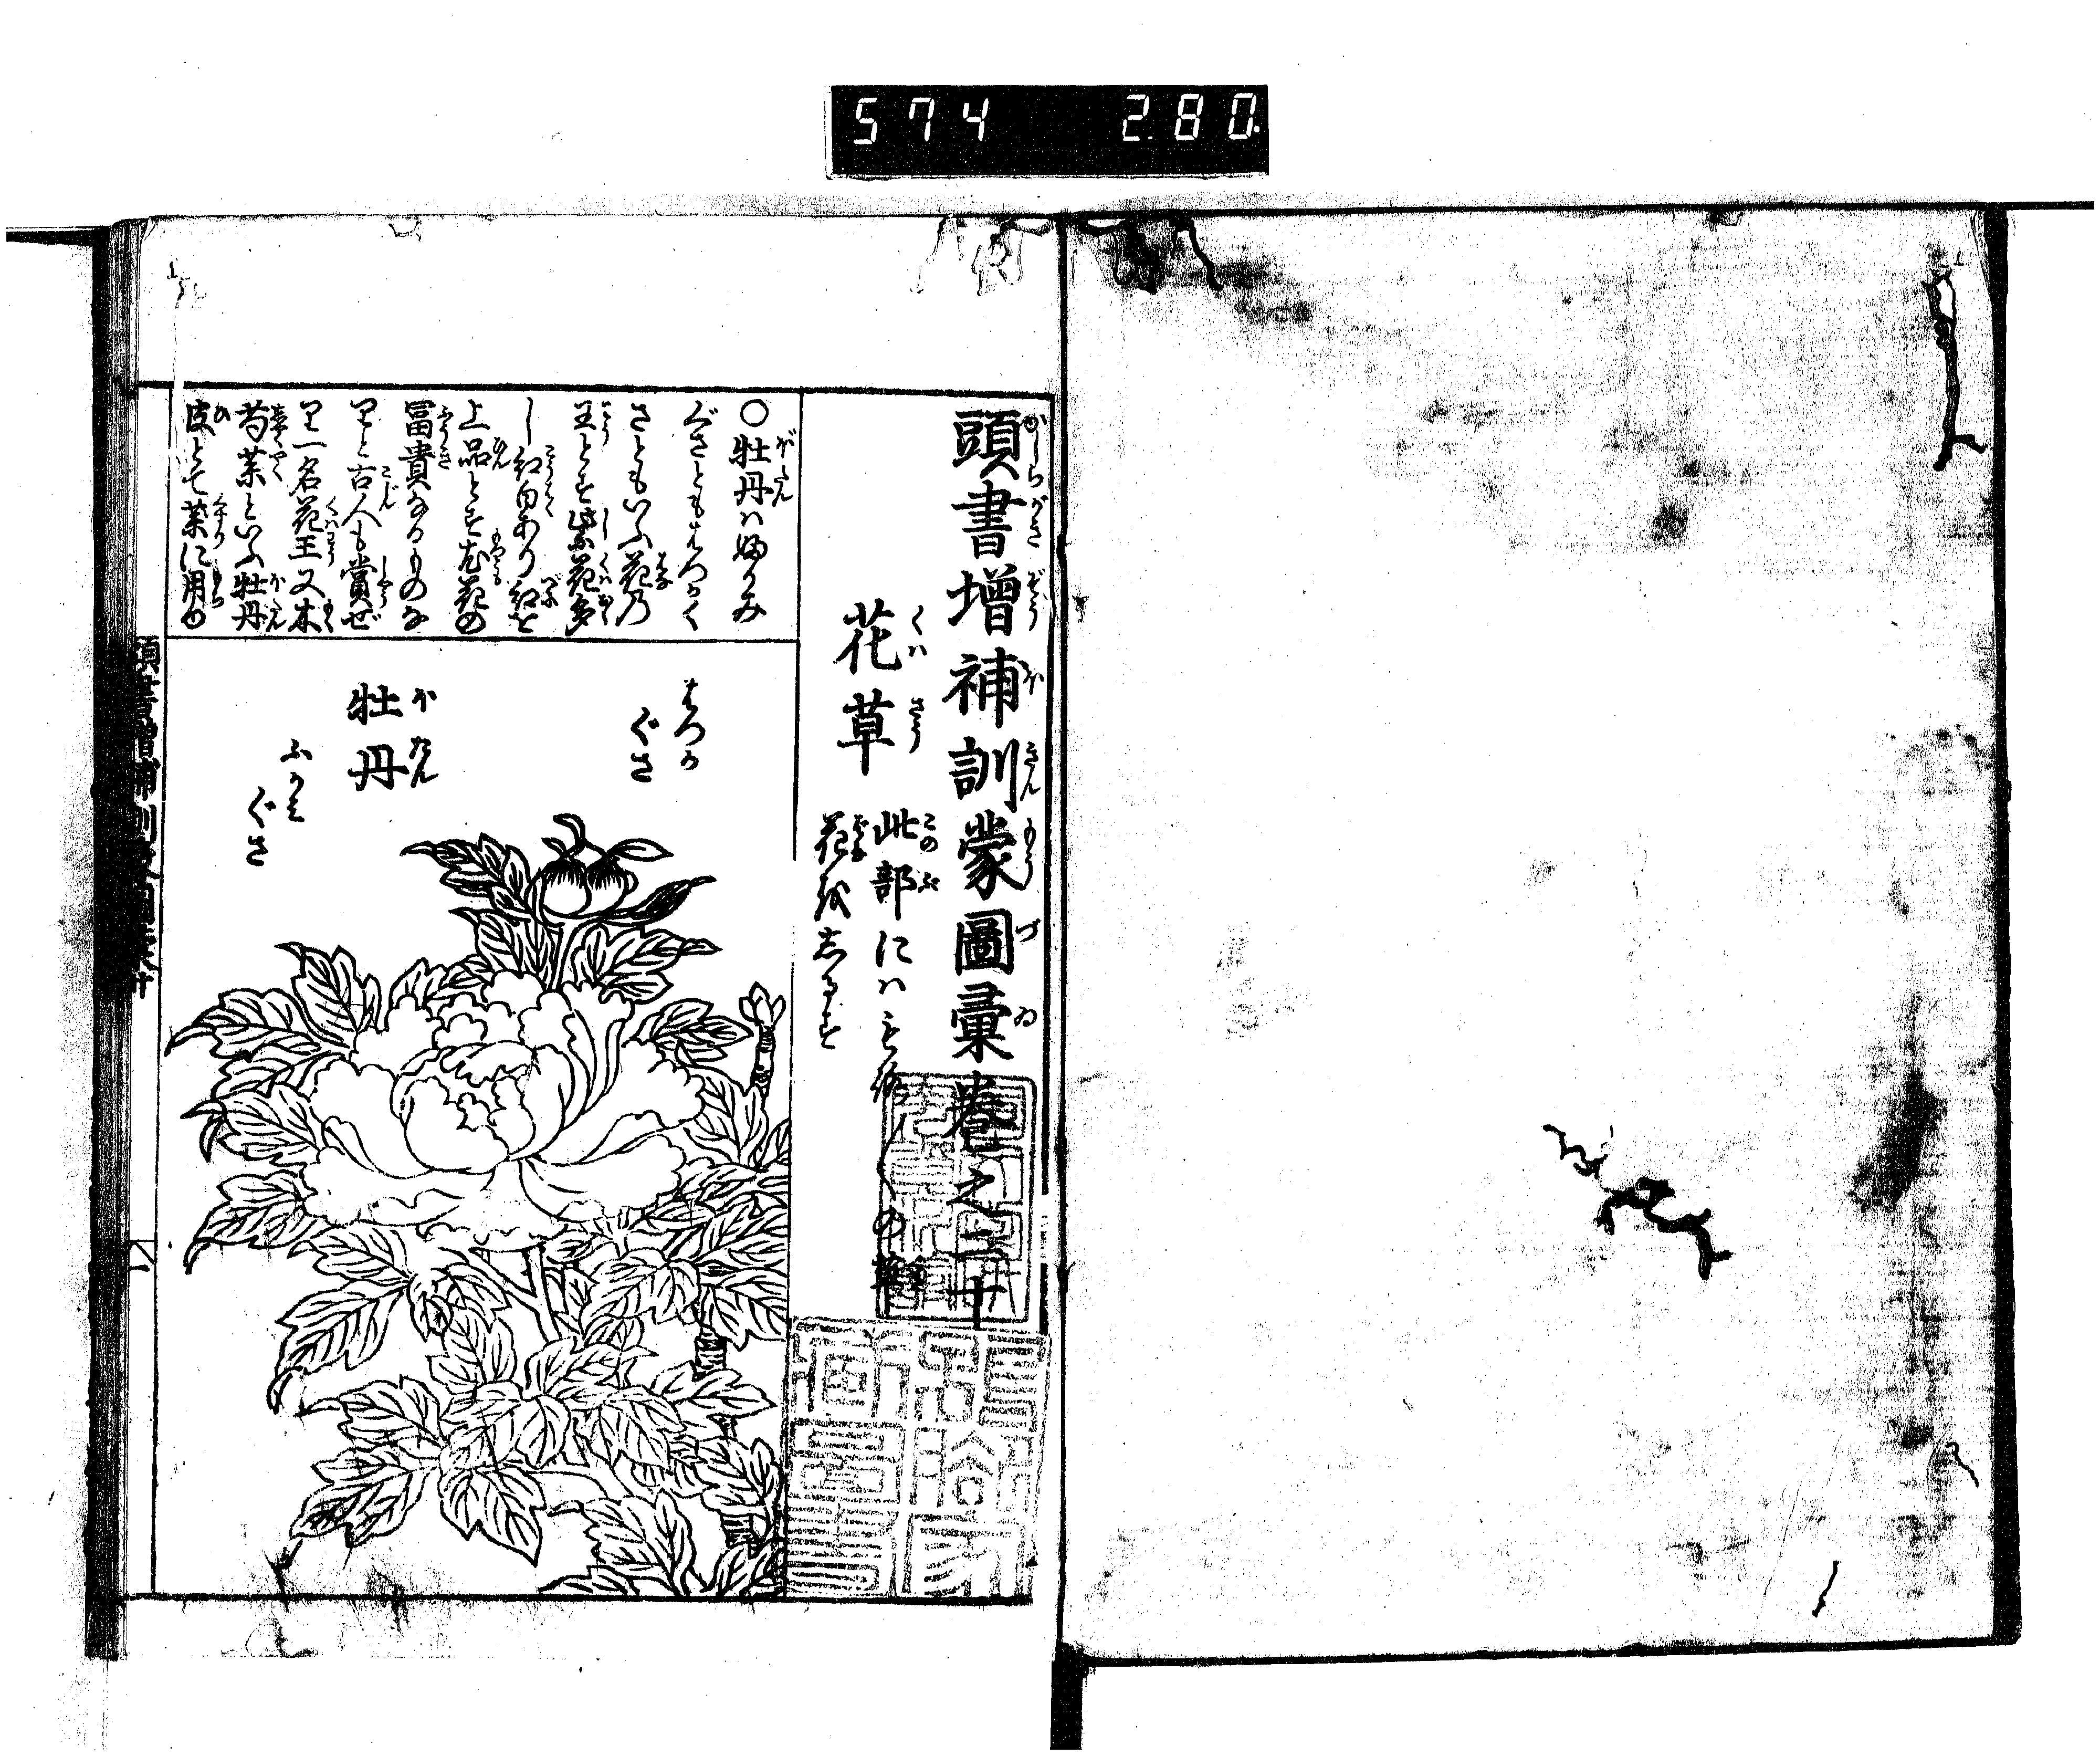 574 2.80.
頭書増補訓蒙圖彙巻之二十
花草
此部にハもろ〳〵の草
花をしるす
○牡丹ハふかみ
ぐさともはつか
さともいふ花の
王とす紫花多
し紅白あり紅を
上品とす
冨貴なるものな
りと古人も賞ぜ
り一名花王又木
芍薬といふ牡丹
皮とて薬に用ゆ
はつか
ぐさ
牡丹
ふかみ
ぐさ
頭書増補訓蒙圖彙二十